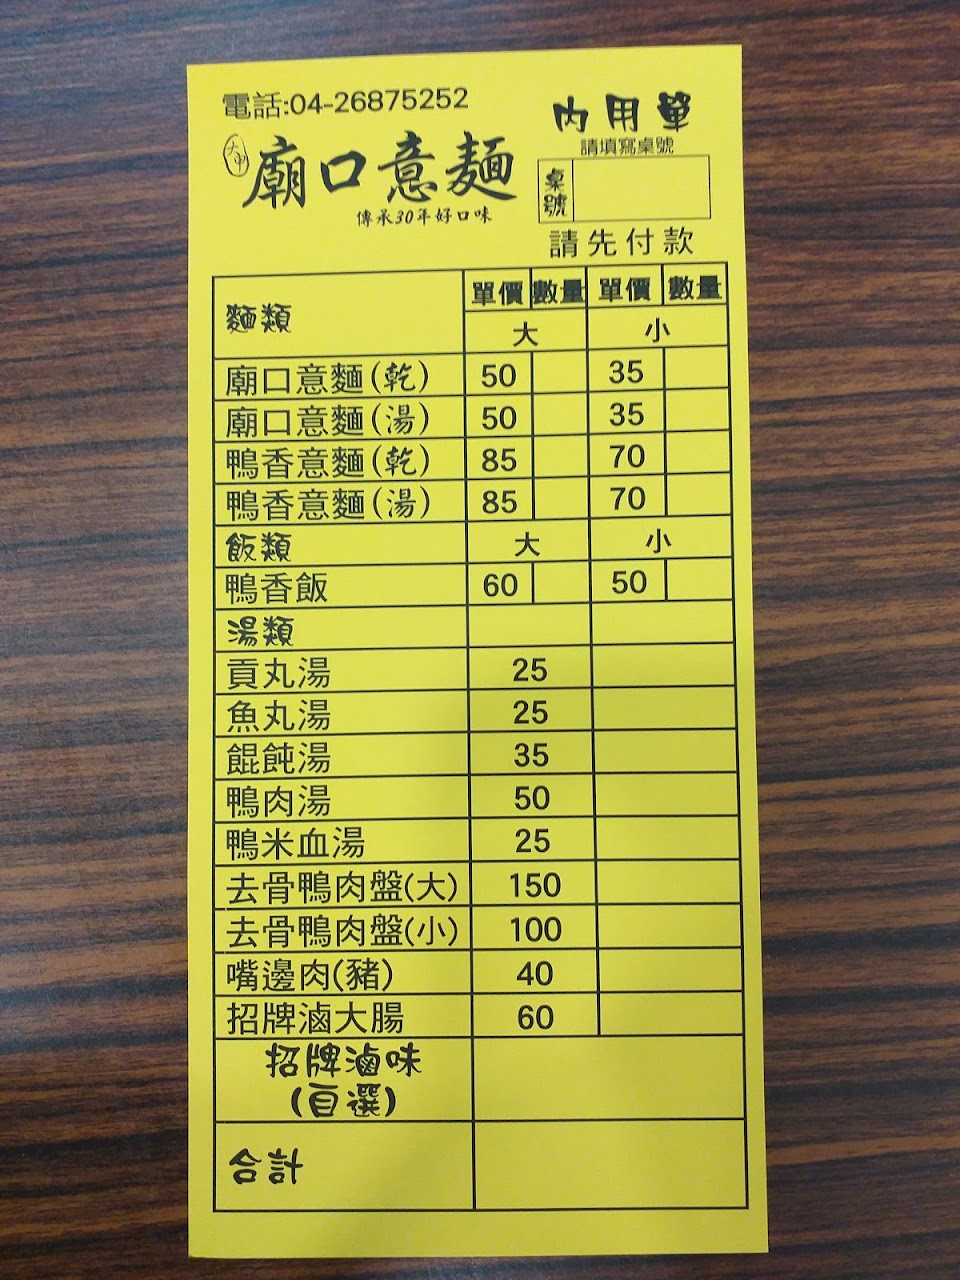 電話:04-26875252
內用單
請填寫桌號
大甲
廟口意麵
傳承30年好口味
桌號
請先付款
麵類 單價 數量 單價 數量
大 小
廟口意麵(乾) 50 35
廟口意麵(湯) 50 35
鴨香意麵(乾) 85 70
鴨香意麵(湯) 85 70
飯類 大 小
鴨香飯 60 50
湯類
貢丸湯 25
魚丸湯 25
餛飩湯 35
鴨肉湯 50
鴨米血湯 25
去骨鴨肉盤(大) 150
去骨鴨肉盤(小) 100
嘴邊肉(豬) 40
招牌滷大腸 60
招牌滷味
(自選)
合計